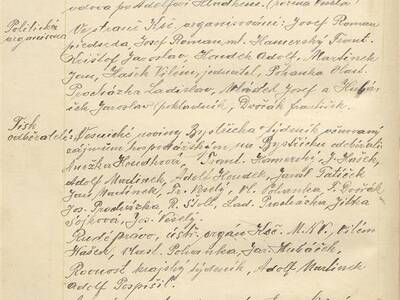 Politická
organisace
Ve straně Ksč. organisováni: Josef Roman
předseda, Josef Roman ml. Hamerský Frant.
Krištof Jaroslav, Houdek Adolf, Martinek
Jan, Hašek Vilém, jednatel, Pohanka Vlast.
Procházka Ladislav, Josef a Hubá-
ček Jaroslav (pokladník, Dvořák František.
Tisk
odběratelé:
Vesnické noviny Bystřicka týdeník věnovaný
zájmům hospodářským na Bystřicku odebírali
Anežka Houdková, Frant. Hamerský, J. Hašek,
Adolf Martinek, Adolf Houdek, Jarosl.
Jan Martinek, Fr. Veselý, Vl. Pohanka, F. Dvořák
Jos. Procházka, R. Štoll, Lad. Procházka, Jitka
Sojková, Jos. Veselý.
Rudé právo, ústř. orgán Ksč. M.N.V., Vilém
Hašek, Vlast. Pohanka, Jar. Hubáček.
Rovnost krajský týdeník, Adolf Martinek
Adolf Pospíšil.